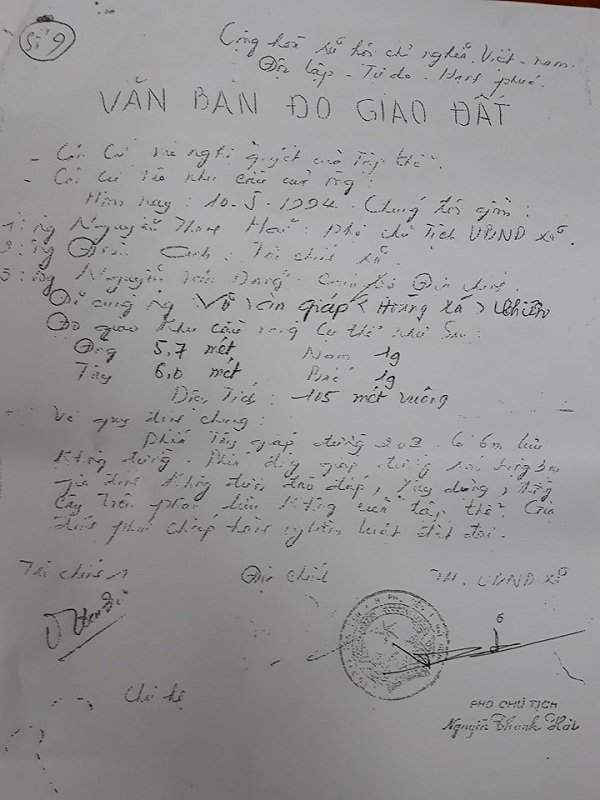 Số 9
Cộng hoà xã hội chủ nghĩa Việt-nam
Độc lập - Tự do - Hạnh phúc
VĂN BẢN ĐO GIAO ĐẤT
- Căn cứ vào nghị quyết của Tập thể.
- Căn cứ vào nhu cầu của ông:
Hôm nay: 10-5-1994. Chúng tôi gồm:
1: ông Nguyễn Thanh Hải: Phó chủ Tịch UBND xã.
2: ông Đoàn Anh: Tài chính xã.
3: ông Nguyễn văn Cán bộ Địa chính.
Để cùng ông Vũ văn giáp (Hoàng xá)
Đo giao khu cầu cụ thể như Sau:
Đông 5,7 mét Nam 19
Tây 6,0 mét Bắc 19
Diện Tích: 105 mét vuông
- Về quy định chung:
Phía Tây giáp đường 202 có 6m lưu
không đường. Phía đông giáp đường rộng 3m
gia đình không được đào đắp, xây dựng, trồng
Cây trên phần lưu không của tập thể. Gia
đình phải chấp hành nghiêm luật đất đai.
Tài chính Địa chính TM. UBND Xã
PHÓ CHỦ TỊCH
Nguyễn Thanh Hải
Chủ hộ